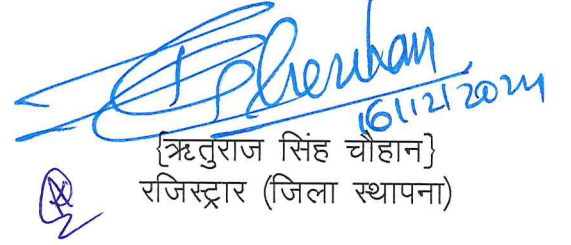 16/12/2024
{ऋतुराज सिंह चौहान}
रजिस्ट्रार (जिला स्थापना)